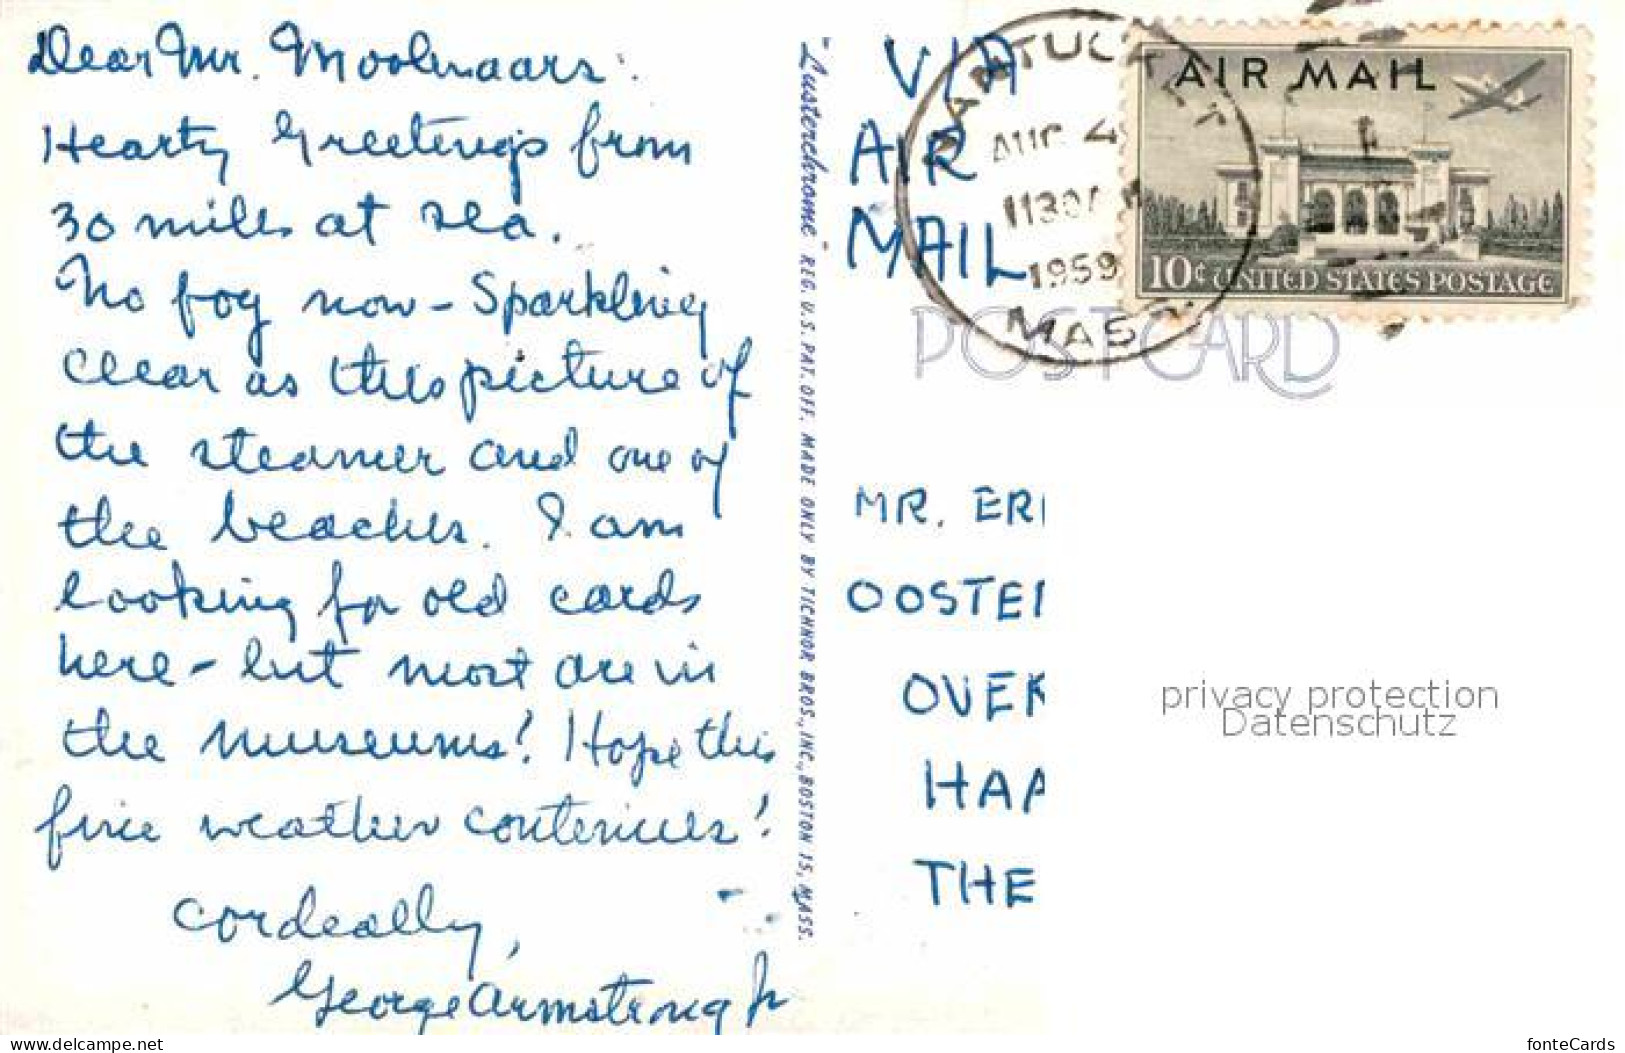 Dear Mr. Moolenaars:
Hearty Greetings from
30 miles at sea.
No fog now - Sparkling
clear as this picture of
the steamer and one of
the beaches. I am
looking for old cards
here - but most are in
the museums! Hope this
fine weather continues!
Cordially,
George Armstrong Jr
"Lusterchrome" REG. U.S. PAT. OFF. MADE ONLY BY TICHNOR BROS., INC., BOSTON 15, MASS.
VIA
AIR
MAIL
NANTUCKET
AUG 4
1130A M
1959
MASS
AIR MAIL
10¢ UNITED STATES POSTAGE
POST CARD
MR. ERI
OOSTE
OVER
HAA
THE
privacy protection
Datenschutz
www.delcampe.net
fonteCards